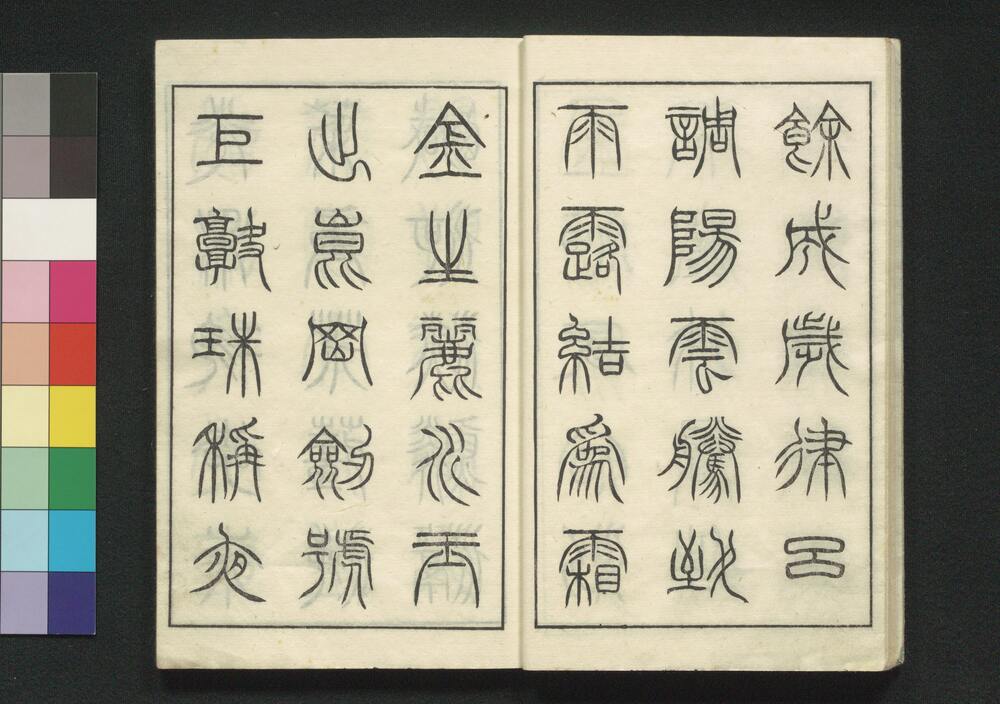 餘成歲律呂
調陽雲騰致
雨露結爲霜
金生麗水玉
出崑岡劒號
巨闕珠稱夜